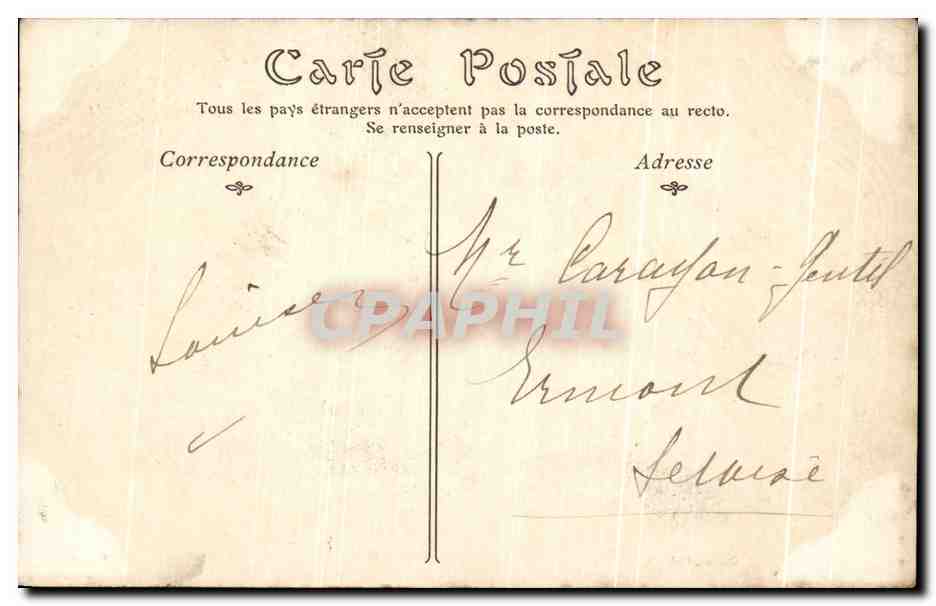 Carte Postale
Tous les pays étrangers n'acceptent pas la correspondance au recto.
Se renseigner à la poste.
Correspondance
Adresse
Louise
Mr Carayon-Gentil
Ermont
CPAPHIL